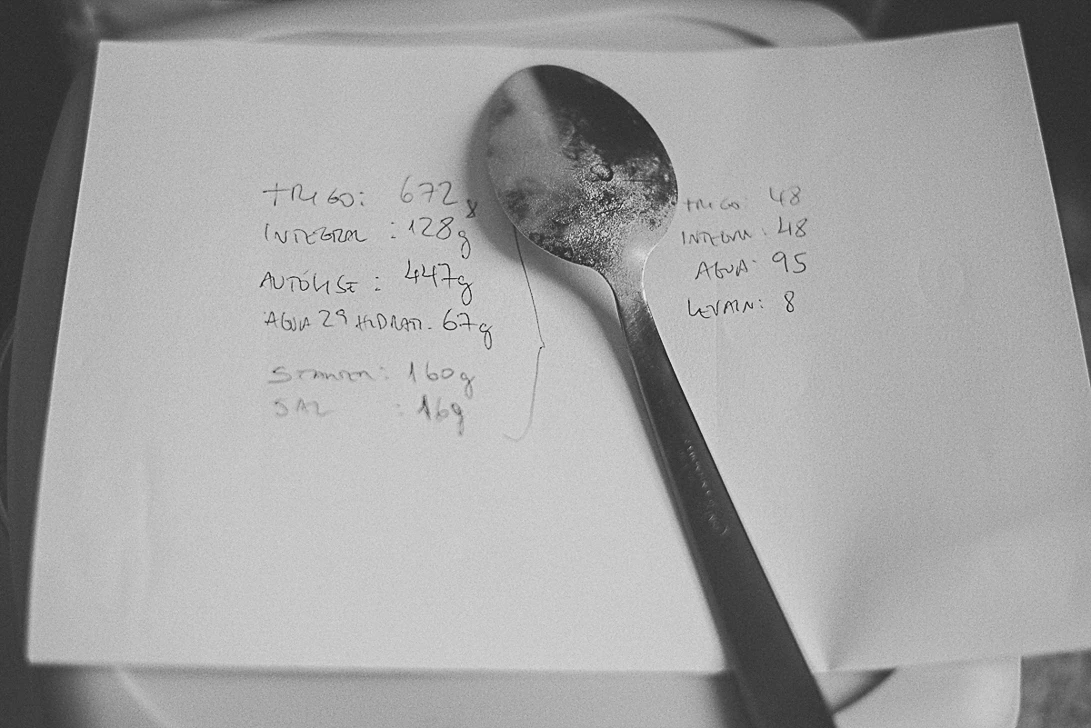 TRIGO: 672g
INTEGRAL : 128g
AUTÓLISE : 447g
AGUA 2ª HIDRAT. 67g
: 160g
SAL : 16g
TRIGO: 48
INTEGRAL: 48
AGUA: 95
LEVAIN: 8